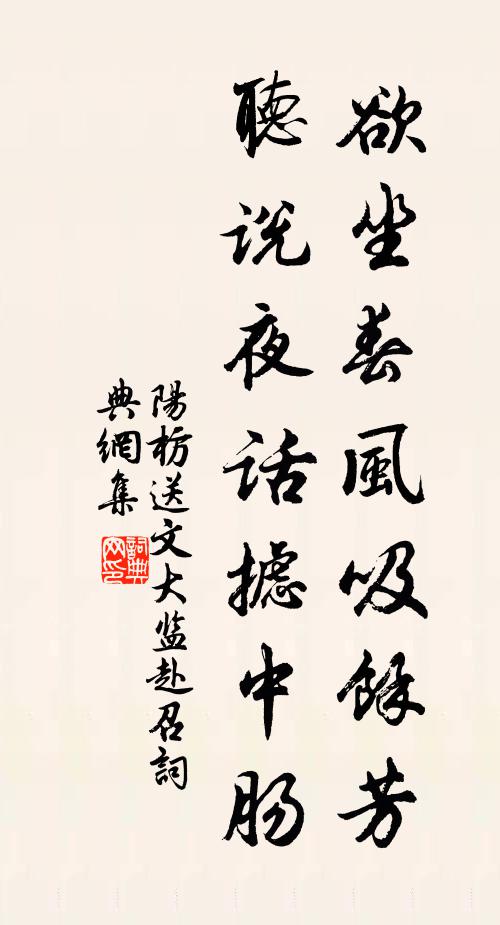 欲坐春風吸餘芳
聽说夜话攄中肠
陽枋送文大监赴召詞
典網集
詞典網印